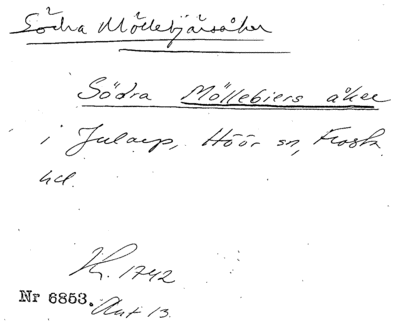 Södra Möllebjärsåker
Södra Möllebiers åker
i Jularp, Höör sn, Frosta
hd.
Kr. 1742
Nr 6853. Akt 13.